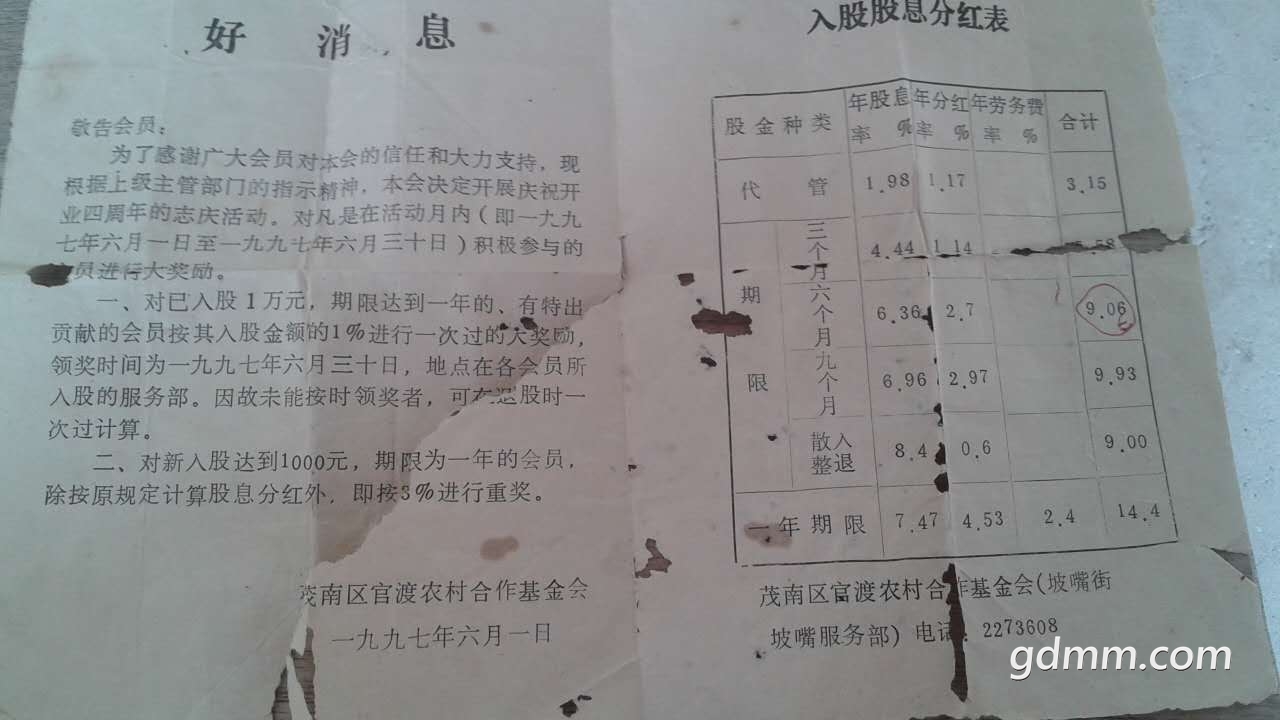 好消息
敬告会员:
为了感谢广大会员对本会的信任和大力支持,现
根据上级主管部门的指示精神,本会决定开展庆祝开
业四周年的志庆活动。对凡是在活动月内(即一九九
七年六月一日至一九九七年六月三十日)积极参与的
员进行大奖励。
一、对已入股1万元,期限达到一年的、有特出
贡献的会员按其入股金额的1%进行一次过的大奖励,
领奖时间为一九九七年六月三十日,地点在各会员所
入股的服务部。因故未能按时领奖者,可在退股时一
次过计算。
二、对新入股达到1000元,期限为一年的会员,
除按原规定计算股息分红外,即按3%进行重奖。
茂南区官渡农村合作基金会
一九九七年六月一日
入股股息分红表
股金种类 年股息率 % 年分红率 % 年劳务费率 % 合计
代管 1.98 1.17 3.15
期限
三个月 4.44 1.14 .58
六个月 6.36 2.7 9.06
九个月 6.96 2.97 9.93
散入整退 8.4 0.6 9.00
一年期限 7.47 4.53 2.4 14.4
茂南区官渡农村合作基金会(坡嘴街
坡嘴服务部) 电话: 2273608
gdmm.com